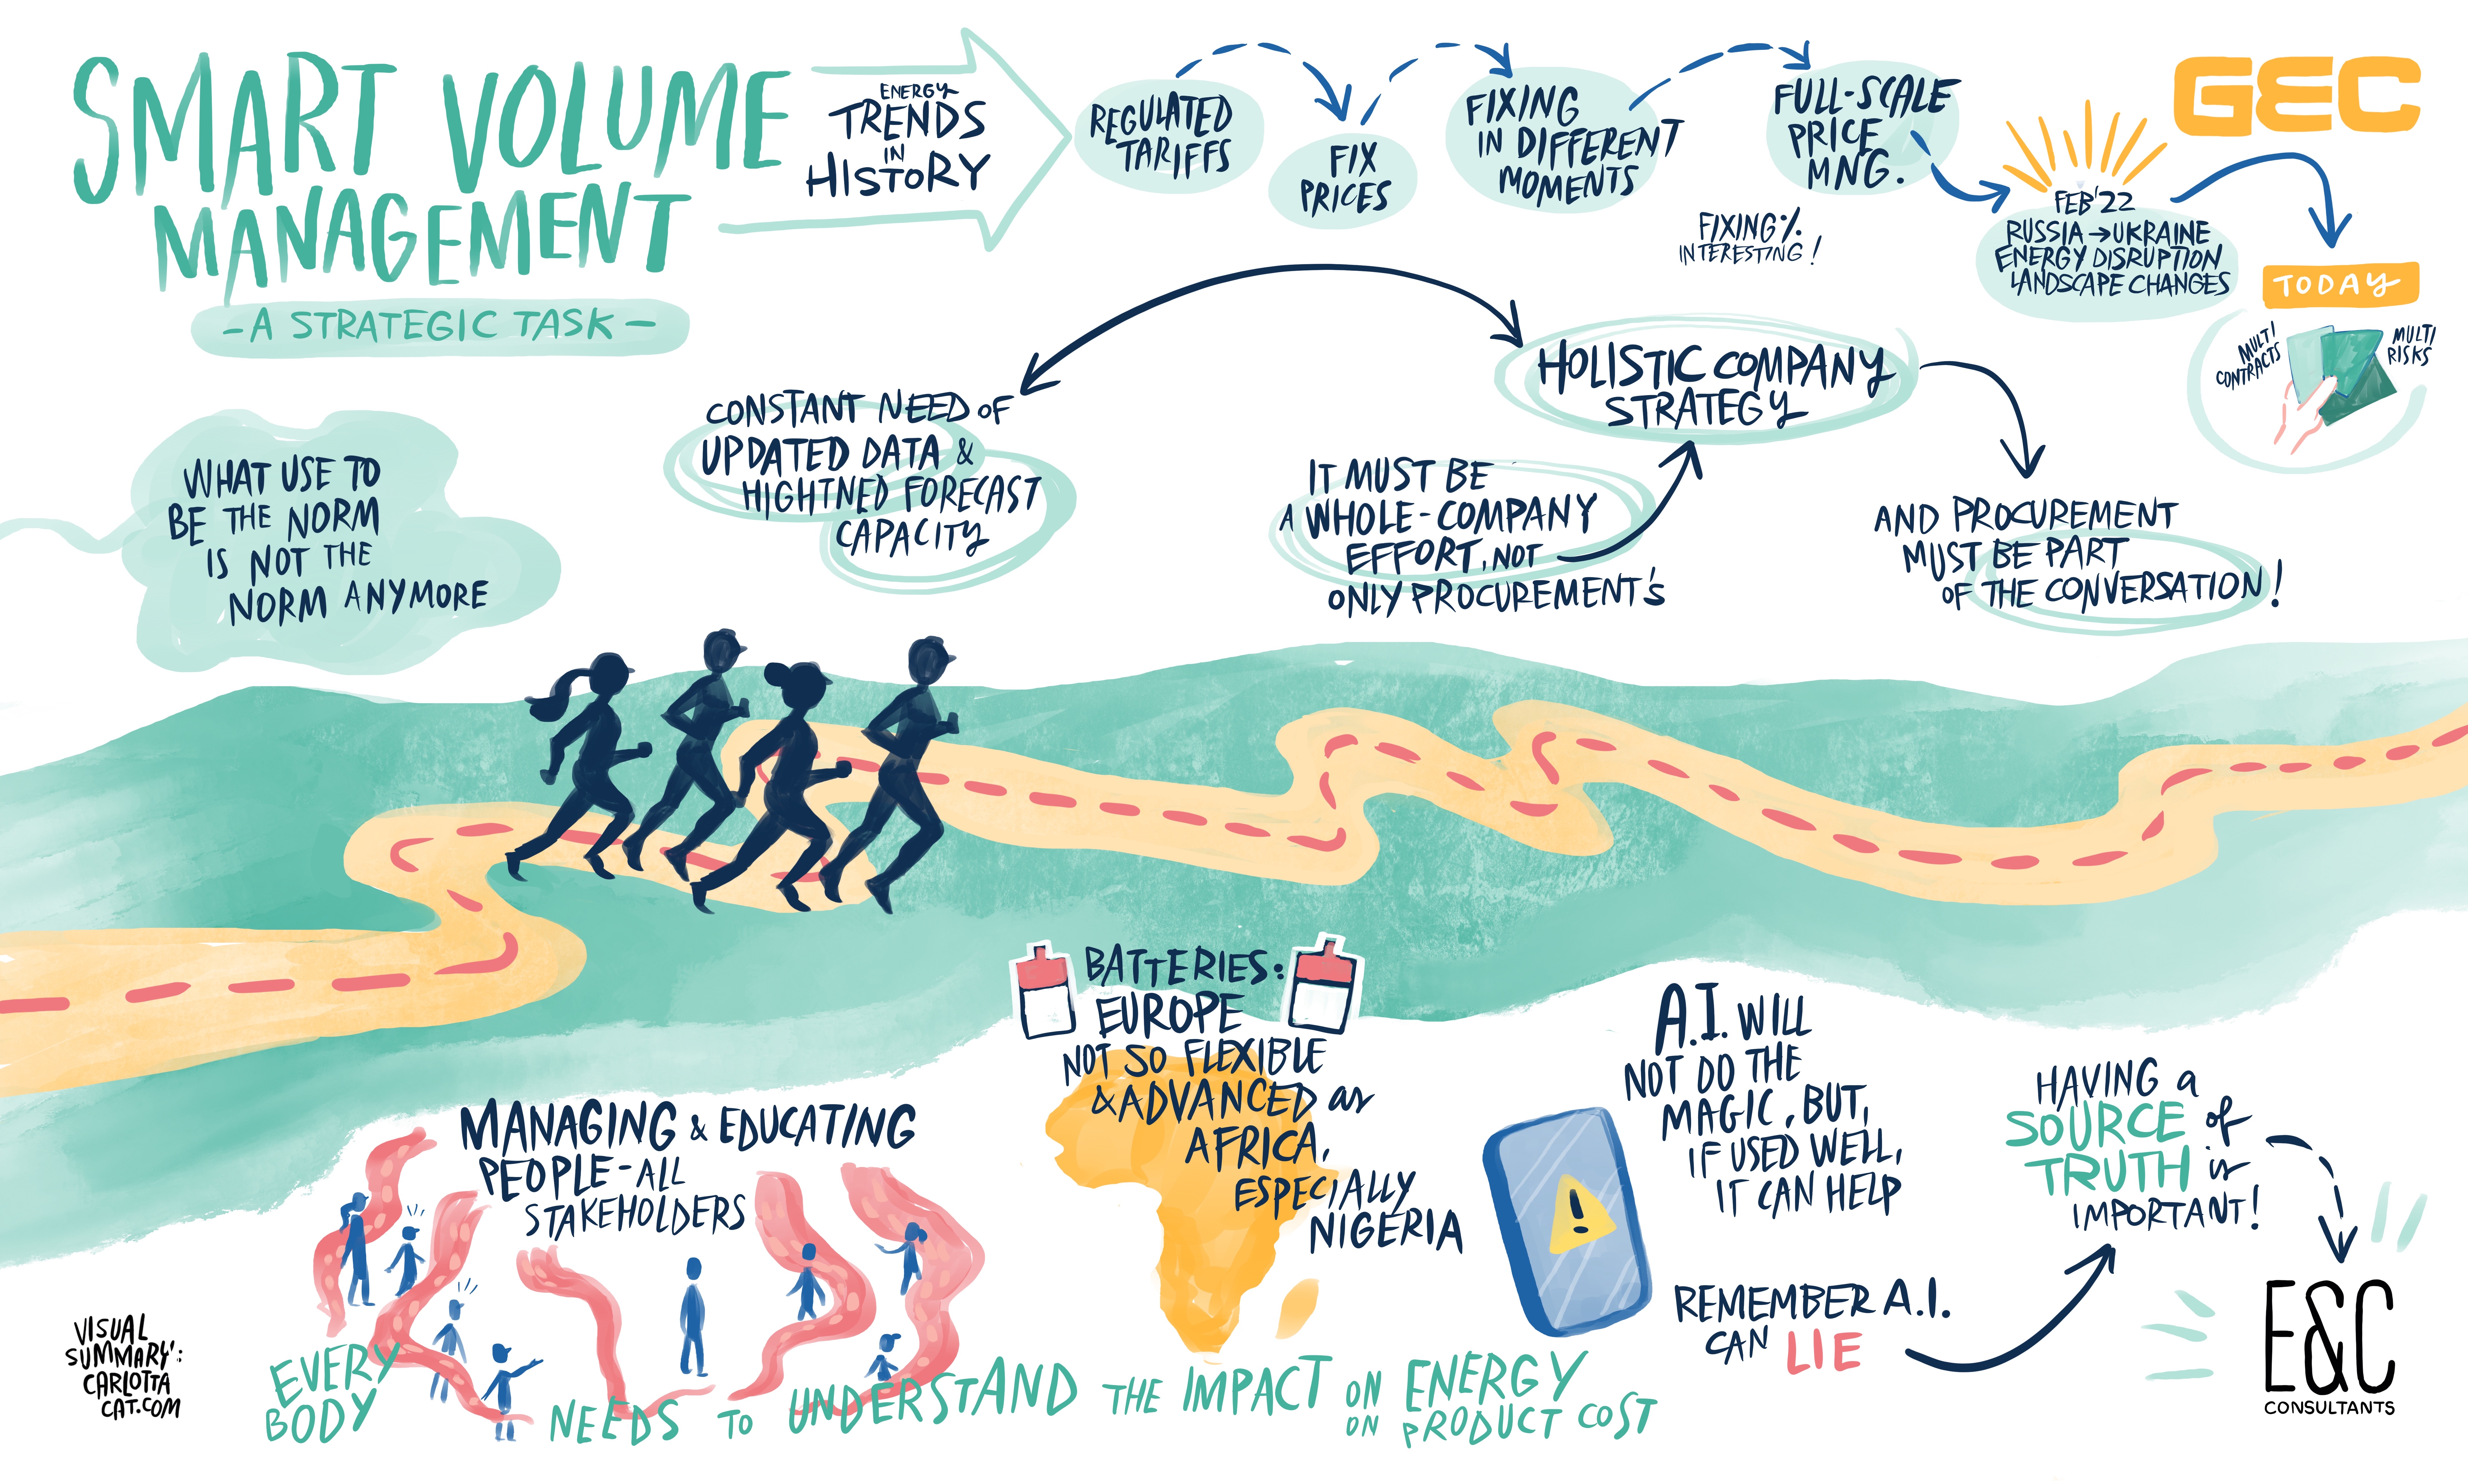 SMART VOLUME
MANAGEMENT
- A STRATEGIC TASK -
ENERGY
TRENDS
IN
HISTORY
REGULATED
TARIFFS
FIX
PRICES
FIXING
IN DIFFERENT
MOMENTS
FULL-SCALE
PRICE
MNG.
FIXING %
INTERESTING!
FEB'22
RUSSIA → UKRAINE
ENERGY DISRUPTION
LANDSCAPE CHANGES
GEC
TODAY
MULTI
CONTRACTS
MULTI
RISKS
WHAT USE TO
BE THE NORM
IS NOT THE
NORM ANYMORE
CONSTANT NEED OF
UPDATED DATA &
HIGHTNED FORECAST
CAPACITY
HOLISTIC COMPANY
STRATEGY
IT MUST BE
A WHOLE-COMPANY
EFFORT, NOT
ONLY PROCUREMENT'S
AND PROCUREMENT
MUST BE PART
OF THE CONVERSATION!
MANAGING & EDUCATING
PEOPLE - ALL
STAKEHOLDERS
BATTERIES:
EUROPE
NOT SO FLEXIBLE
& ADVANCED as
AFRICA,
ESPECIALLY
NIGERIA
A.I. WILL
NOT DO THE
MAGIC, BUT,
IF USED WELL,
IT CAN HELP
REMEMBER A.I.
CAN LIE
HAVING a
SOURCE of
TRUTH is
IMPORTANT!
E&C
CONSULTANTS
EVERY
BODY
NEEDS TO UNDERSTAND THE IMPACT ON ENERGY
ON PRODUCT COST
VISUAL
SUMMARY:
CARLOTTA
CAT.COM